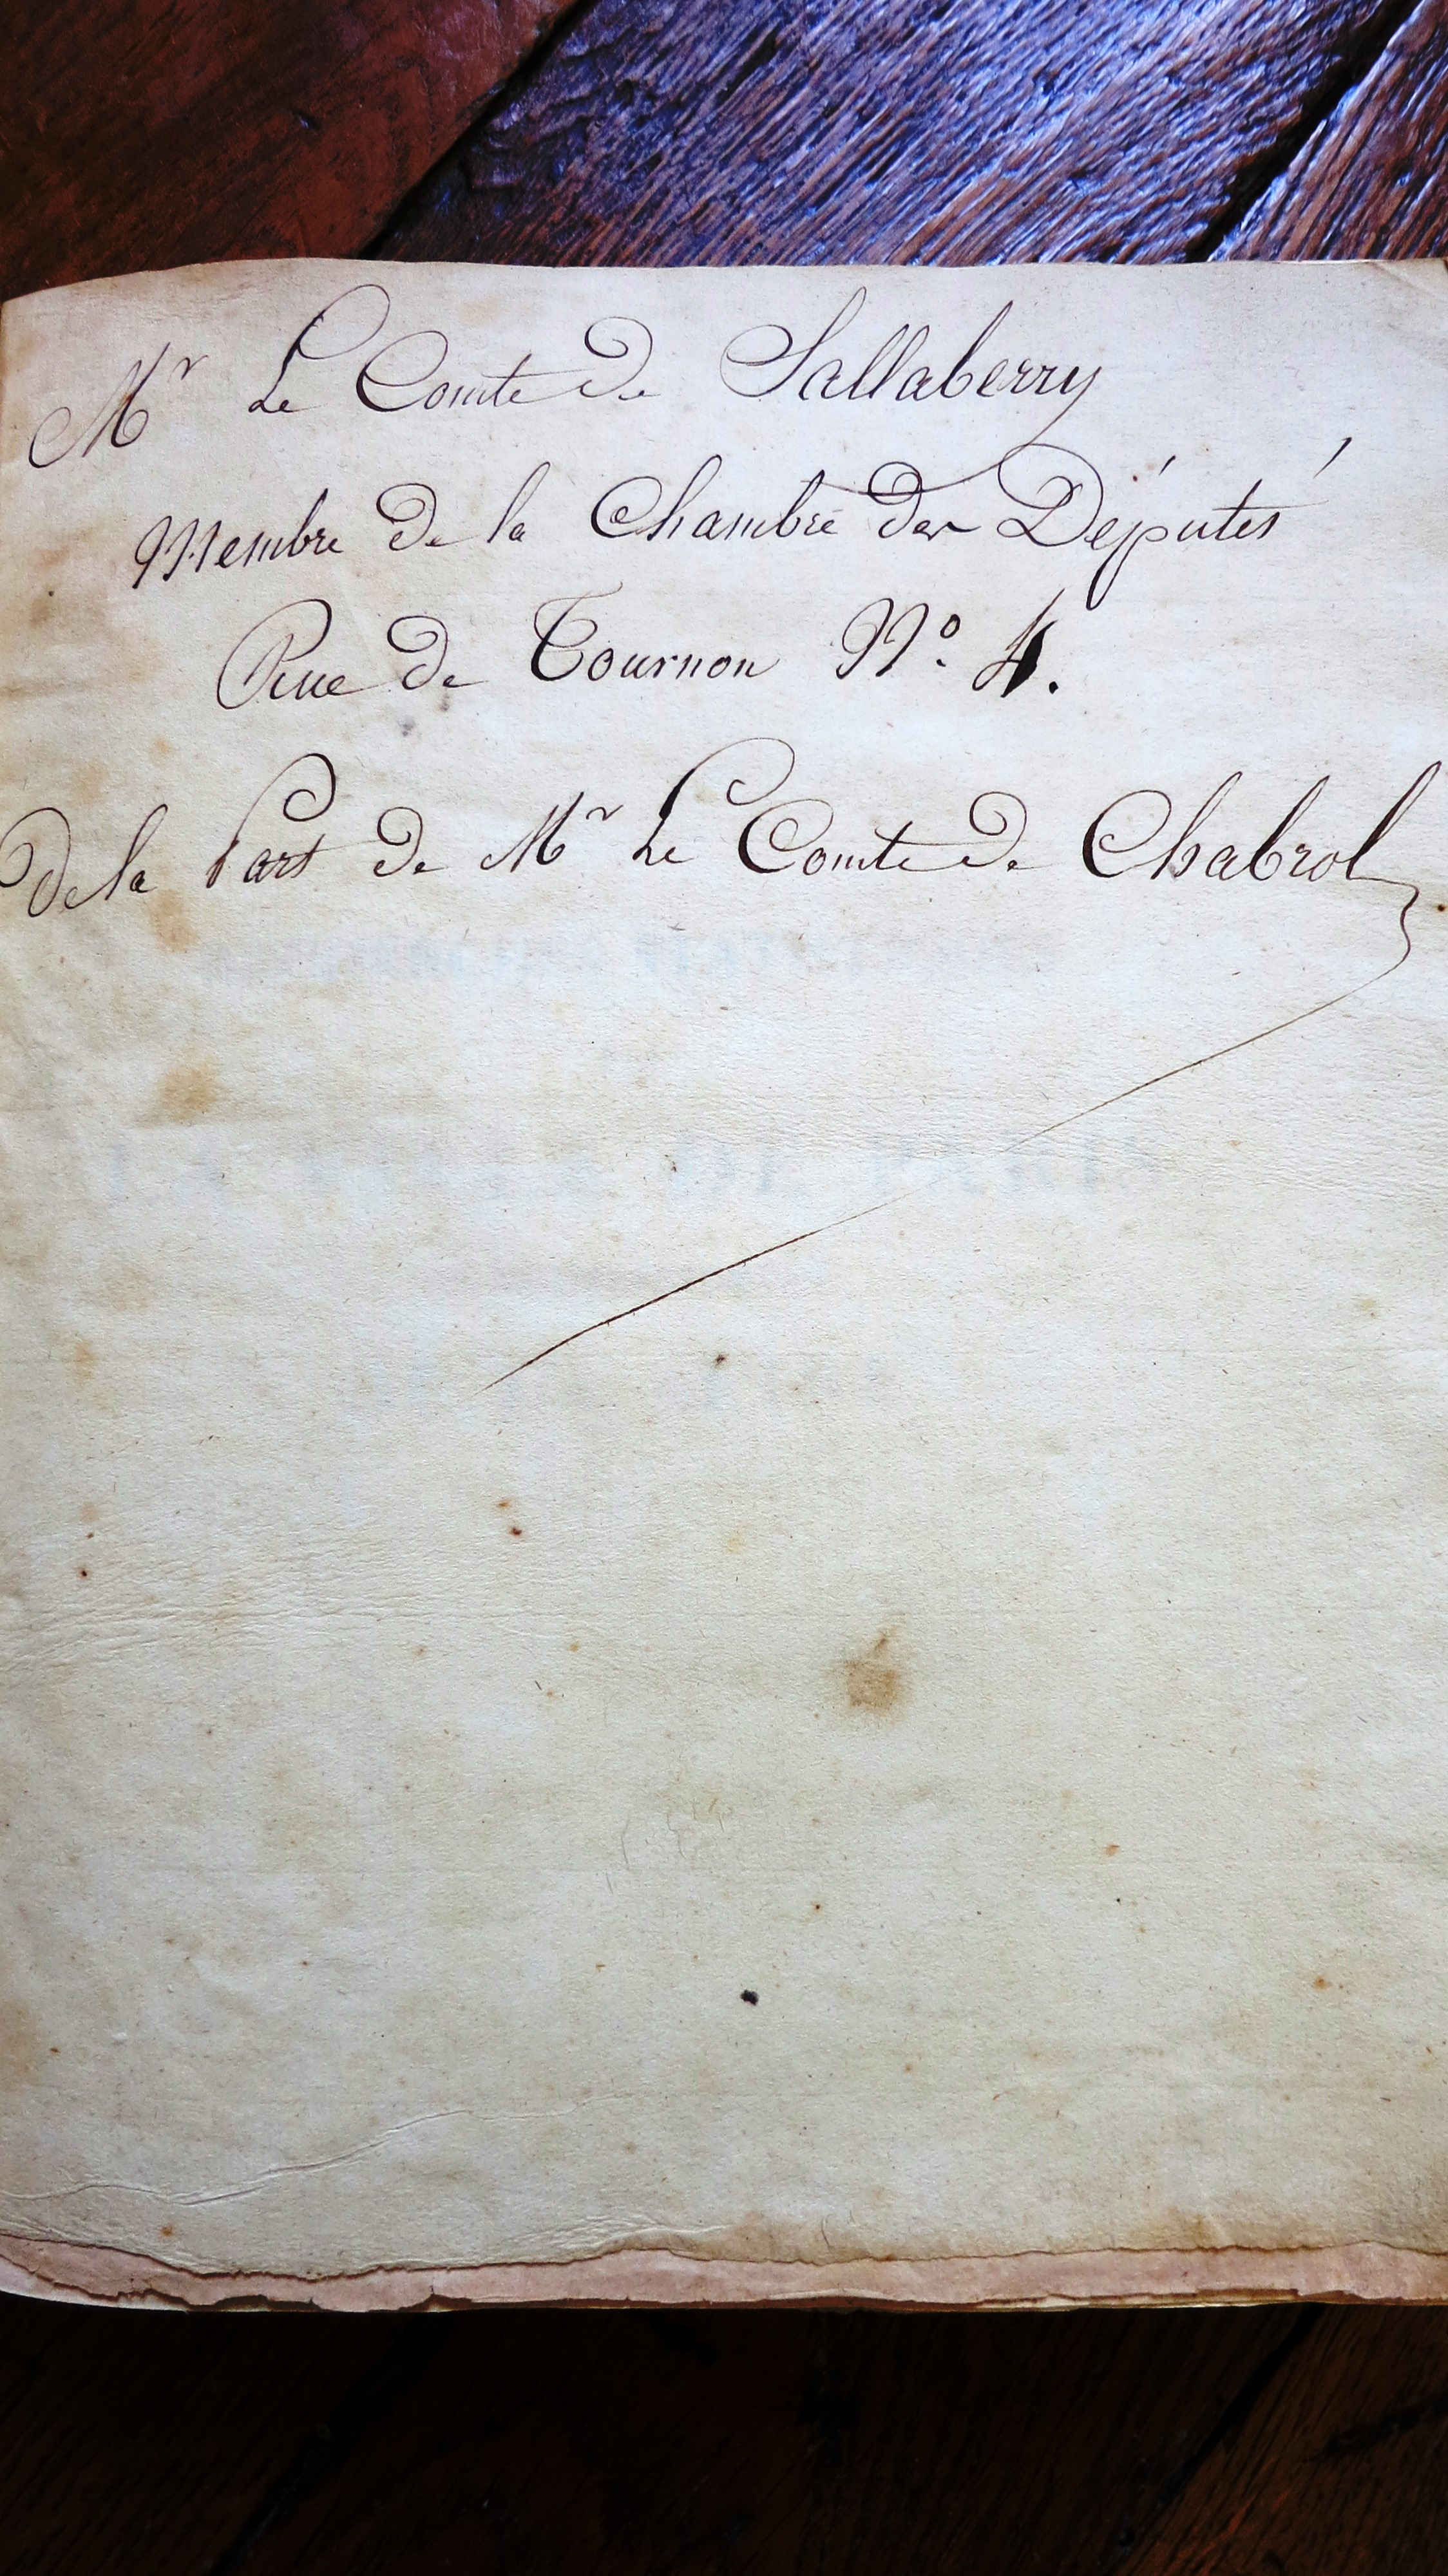 Mr Le Comte de Sallaberry
Membre de la Chambre des Députés
Rue de Tournon No. 4.
de la Part de Mr Le Comte de Chabrol